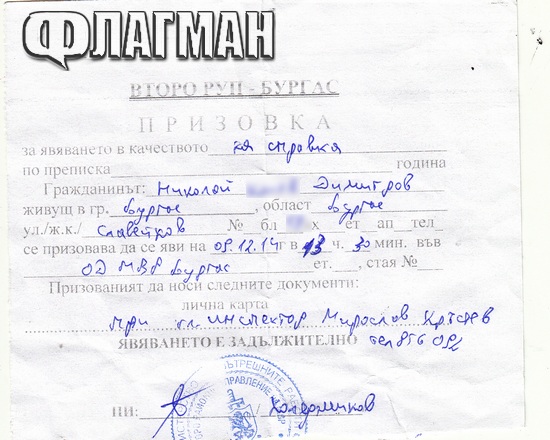 ФЛАГМАН
ВТОРО РУП - БУРГАС
ПРИЗОВКА
за явяването в качеството за справка
по преписка година
Гражданинът: Николай Димитров
живущ в гр. Бургас, област Бургас
ул./ж.к./ Славейков № бл х ет ап тел
се призовава да се яви на 09.12.14 г в 13 ч. 30 мин. във
ОД МВР Бургас ет. , стая №
Призованият да носи следните документи:
лична карта
при гл. инспектор Мирослав
ЯВЯВАНЕТО Е ЗАДЪЛЖИТЕЛНО тел 856 092
ПИ: /